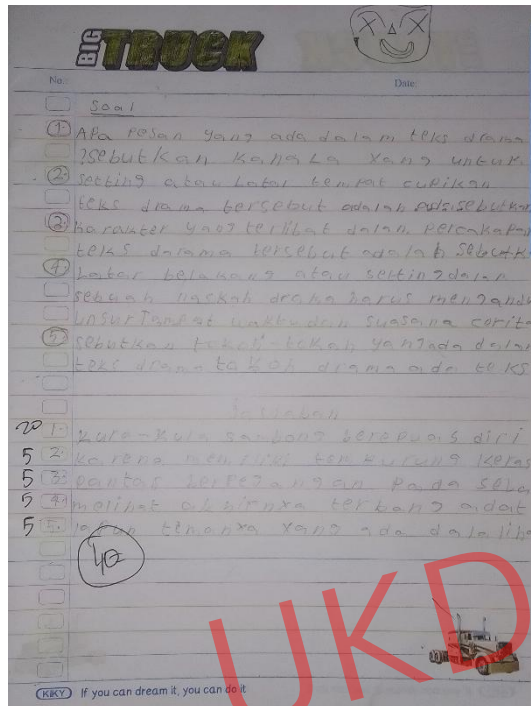 BIG TRUCK
No.: Date:
Soal
1. Apa Pesan yang ada dalam teks drama
?sebutkan yang untuk
2. setting atau Latar tempat cuplikan
teks drama tersebut adalah
3. karakter yang terlibat dalam Percakapan
teks darama tersebut adalah sebutk
4. Latar belakang atau setting dalan
sebuah naskah drama harus mengandu
unsur Tampat waktu dan suasana cerita
5. sebutkan tokoh-tokah yang ada dalan
teks drama drama ada teks
Jawaban
20 1. kura-kura sombong berepuas diri
5 2. karena memiliki terkurung keras
5 3. pantas Pada seba
5 4. melihat akhirnxa terbang
5 5. temanxa xang ada
40
UKD
KIKY If you can dream it, you can do it